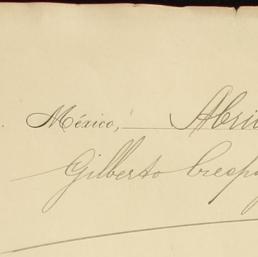 México, Abril
Gilberto Crespo